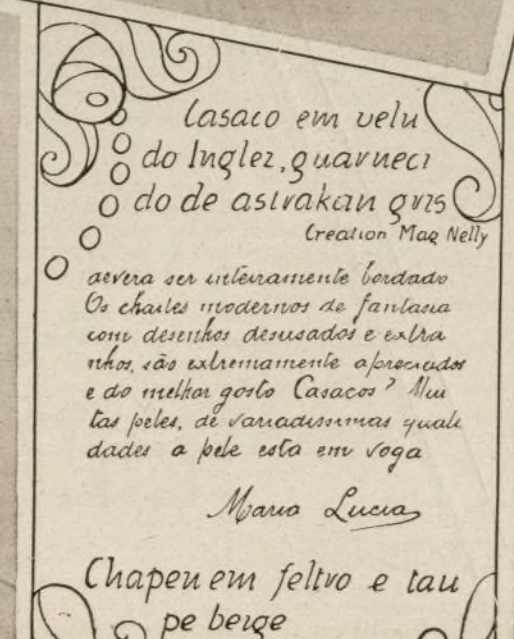 Casaco em velu
do Inglez, guarneci
do de astrakan gris
Creation Mag Nelly
devera ser inteiramente bordado
Os chailes modernos de fantasia
com desenhos desusados e extra
nhos, são extremamente apreciados
e do melhor gosto Casacos? Mui
tas peles, de variadissimas quali
dades a pele esta em voga
Maria Lucia
Chapeu em feltro e tau
pe beige